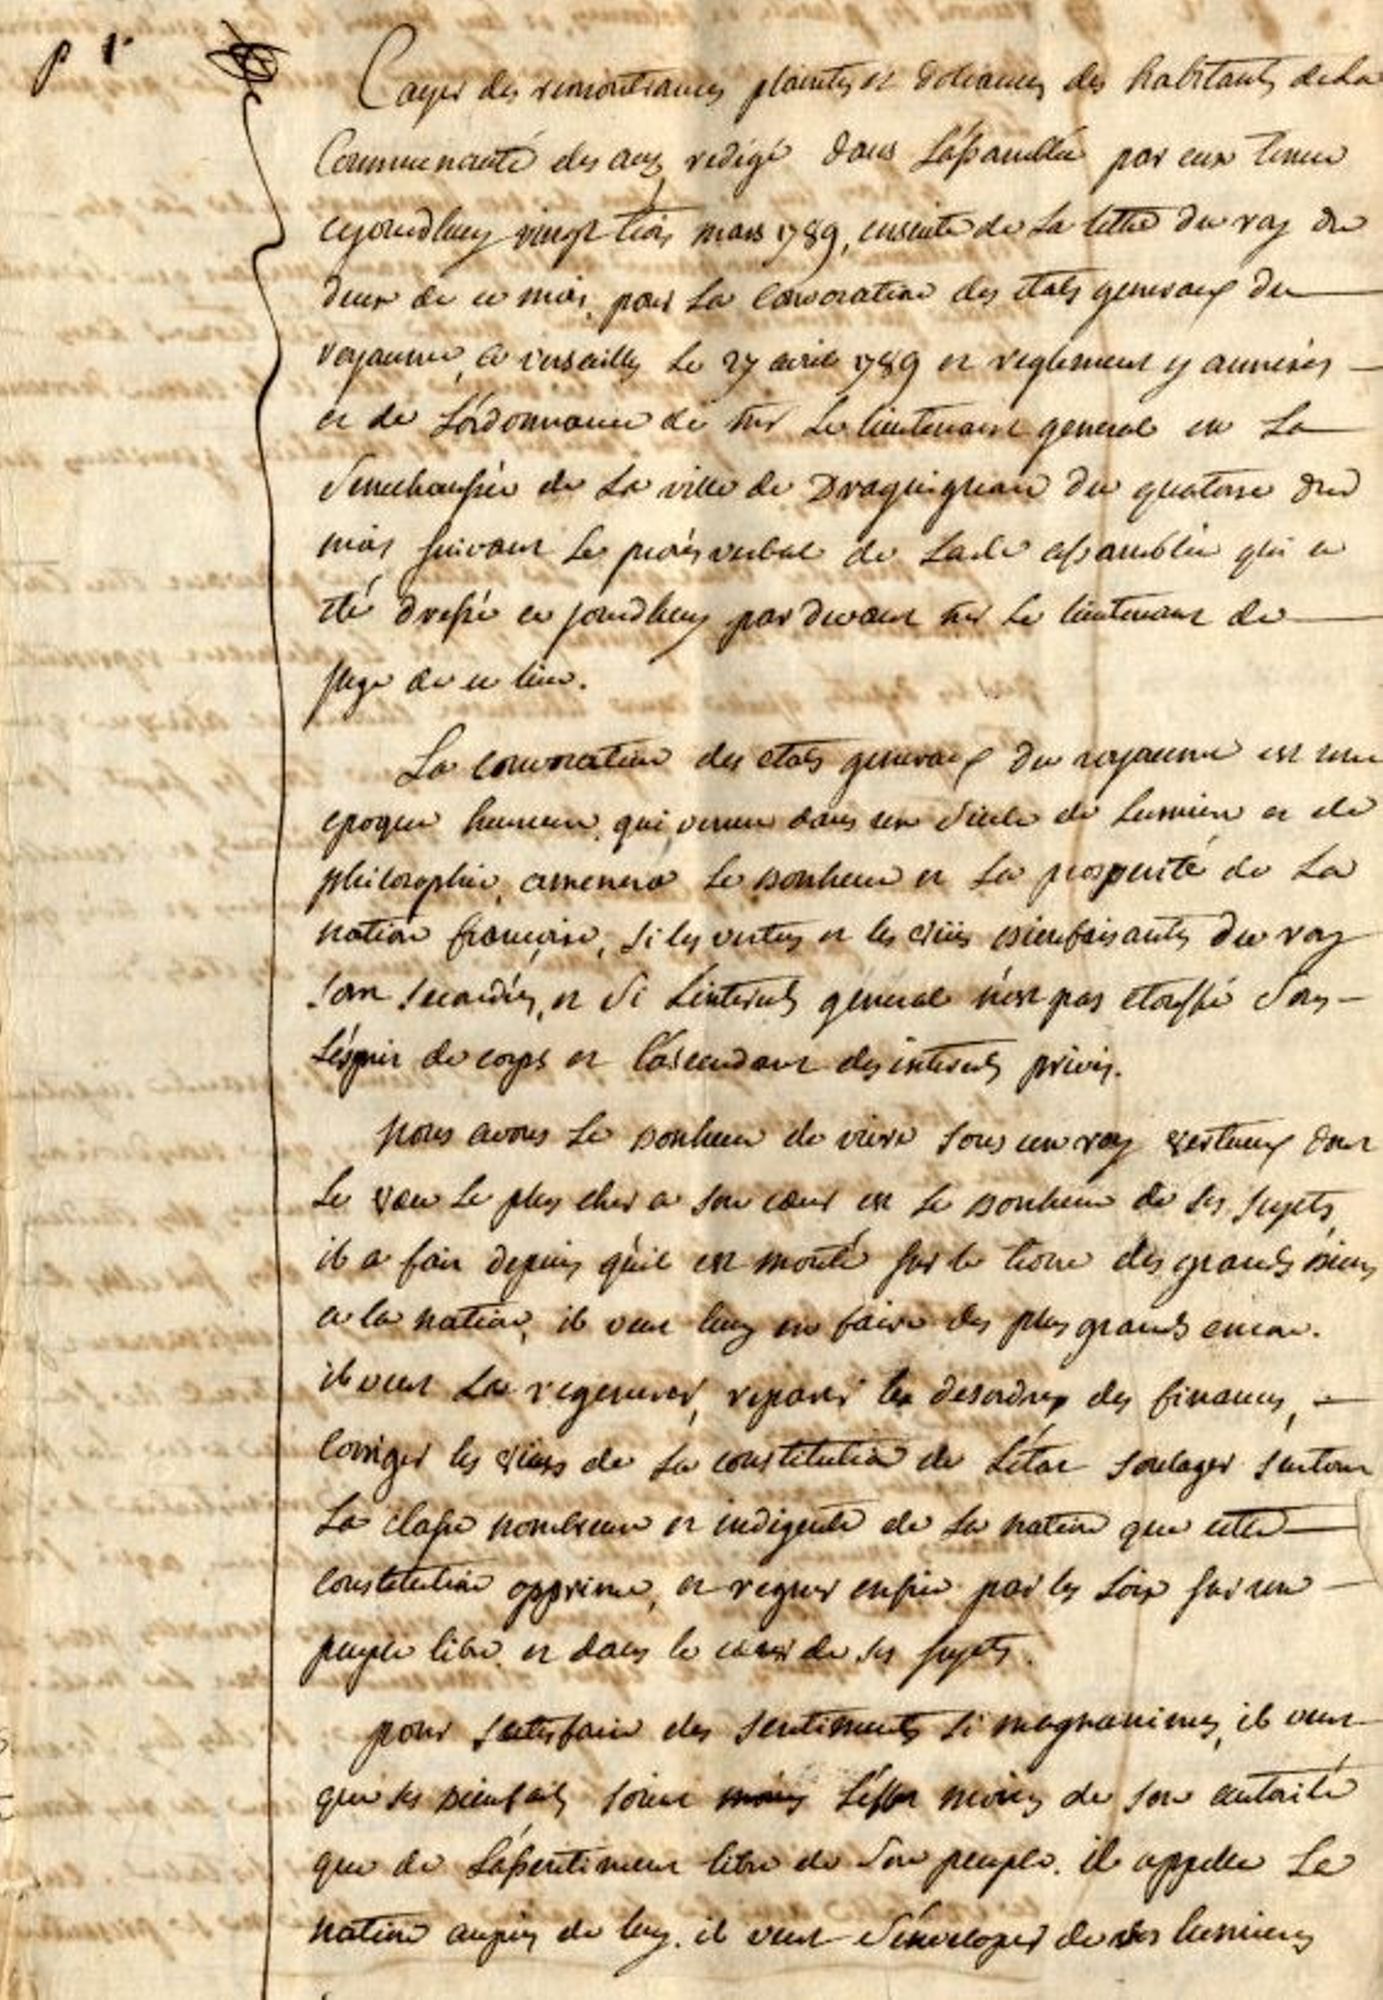 p 1r
Cayer des remontrances plaintes et doleances des habitants de la
Communauté des arcs redigé dans l'assamblée par eux tenue
cejourdhuy vingt trois mars 1789, ensuite de la lettre du roy du
deux de ce mois, pour la convocation des etats generaux du
royaume, a versailles le 27 avril 1789 et reglement y annexés
et de l'ordonnance de mr le lieutenant general en la
senechaussée de la ville de Draguignan du quatorse dud
mois suivant le procés verbal de lade assamblée qui a
été dressé ce jourdhuy pardevant mr le lieutenant de
juge de ce lieu.
La convocation des etats generaux du royaume est une
epoque heureuse, qui, venue dans un siecle de lumiere et de
philosophie, amenera le bonheur et la prosperité de la
nation françoise, si les vertus et les vües bienfaisantes du roy
sont secondées, et si l'interest général n'est pas étouffé sous
l'ésprit de corps et l'ascendant des interets privés.
nous avons le bonheur de vivre sous un roy vertueux dont
le vœu le plus cher a son cœur est le bonheur de ses sujets,
il a fait depuis qu'il est monté sur le trone des grands biens
a la nation, il veut luy en faire des plus grands encore.
il veut la regenerer, reparer les desordres des finances,
corriger les vices de la constitution de l'état soulager surtout
la classe nombreuse et indigente de la nation que cette
constitution opprime, et regner enfin par les loix sur un
peuple libre et dans le cœur de ses sujets.
pour satisfaire des sentiments si magnanimes, il veut
que ses bienfaits soient moins l'effet moins de son autorité
que de l'assentiment libre de son peuple. il appelle la
nation auprès de luy. il veut s'enveloper de ses lumieres